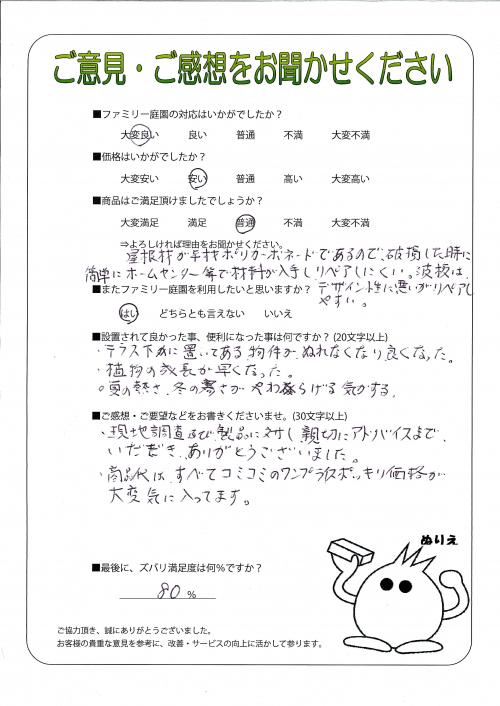 ご意見・ご感想をお聞かせください
■ファミリー庭園の対応はいかがでしたか？
大変良い 良い 普通 不満 大変不満
■価格はいかがでしたか？
大変安い 安い 普通 高い 大変高い
■商品はご満足頂けましたでしょうか？
大変満足 満足 普通 不満 大変不満
⇒よろしければ理由をお聞かせください。
屋根材が平板ポリカーボネードであるので、破損した時に
簡単にホームセンター等で材料が入手しリペアしにくい。波板は、
デザイン性に悪いがリペアし
やすい。
■またファミリー庭園を利用したいと思いますか？
はい どちらとも言えない いいえ
■設置されて良かった事、便利になった事は何ですか？(20文字以上)
・テラス下に置いてある物件が、ぬれなくなり良くなった。
・植物の成長が早くなった。
・夏の熱さ、冬の寒さがやわらげる気がする。
■ご感想・ご要望などをお書きくださいませ。(30文字以上)
・現地調査及び製品に対し親切にアドバイスまで、
いただき、ありがとうございました。
・商品代は、すべてコミコミのワンプライスポッキリ価格が
大変気に入ってます。
■最後に、ズバリ満足度は何％ですか？
80 ％
ぬりえ
ご協力頂き、誠にありがとうございました。
お客様の貴重な意見を参考に、改善・サービスの向上に活かして参ります。